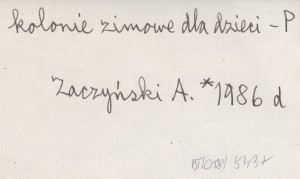 kolonie zimowe dla dzieci - P
Zaczyński A. *1986 d